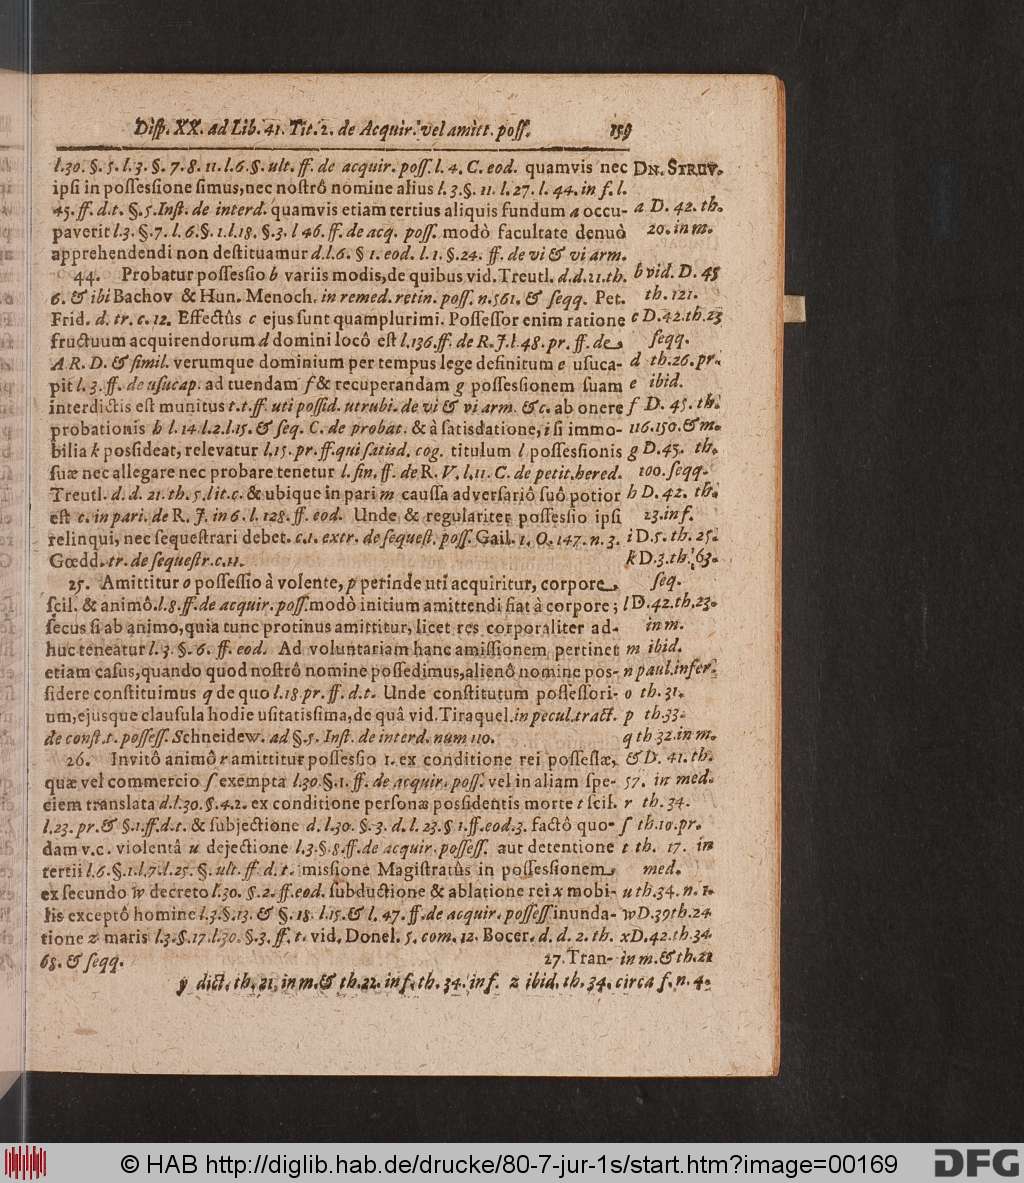 Disp. XX. ad Lib. 41. Tit. 2. de Acquir. vel amitt. poss. 159
l.30. §. 5. l. 3. §. 7. 8. 11. l. 6. §. ult. ff. de acquir. poss. l. 4. C. eod. quamvis nec
ipsi in possessione simus, nec nostrô nomine alius l. 3. §. 11. l. 27. l. 44. in f. l.
45. ff. d. t. §. 5. Inst. de interd. quamvis etiam tertius aliquis fundum a occu-
paverit l. 3. §. 7. l. 6. §. 1. l. 18. §. 3. l 46. ff. de acq. poss. modò facultate denuò
apprehendendi non destituamur d. l. 6. § 1. eod. l. 1. §. 24. ff. de vi & vi arm.
44. Probatur possessio b variis modis, de quibus vid. Treutl. d. d. 21. th.
6. & ibi Bachov & Hun. Menoch. in remed. retin. poss. n. 561. & seqq. Pet.
Frid. d. tr. c. 12. Effectûs c ejus sunt quamplurimi. Possessor enim ratione
fructuum acquirendorum d domini locô est l. 136. ff. de R. J. l 48. pr. ff. de
A R. D. & simil. verumque dominium per tempus lege definitum e usuca-
pit l. 3. ff. de usucap. ad tuendam f & recuperandam g possessionem suam
interdictis est munitus t. t. ff. uti possid. utrubi. de vi & vi arm. &c. ab onere
probationis h l. 14. l. 2. l. 15. & seq. C. de probat. & à satisdatione, i si immo-
bilia k possideat, relevatur l. 15. pr. ff. qui satisd. cog. titulum l possessionis
suæ nec allegare nec probare tenetur l. fin. ff. de R. V. l. 11. C. de petit. hered.
Treutl. d. d. 21. th. 5. lit. c. & ubique in pari m caussa adversariô suô potior
est c. in pari. de R. J. in 6. l. 128. ff. eod. Unde & regulariter possessio ipsi
relinqui, nec sequestrari debet. c. 1. extr. de sequest. poss. Gail. 1. O. 147. n. 3.
Gœdd. tr. de sequestr. c. 11.
25. Amittitur o possessio à volente, p perinde uti acquiritur, corpore
scil. & animô. l. 8. ff. de acquir. poss. modò initium amittendi fiat à corpore;
secus si ab animo, quia tunc protinus amittitur, licet res corporaliter ad-
huc teneatur l. 3. §. 6. ff. eod. Ad voluntariam hanc amissionem pertinet
etiam casus, quando quod nostrô nomine possedimus, alienô nomine pos-
sidere constituimus q de quo l. 18. pr. ff. d. t. Unde constitutum possessori-
um, ejusque clausula hodie usitatissima, de quâ vid. Tiraquel. in pecul. tract.
de const. t. possess. Schneidew. ad §. 5. Inst. de interd. num 110.
26. Invitô animô r amittitur possessio 1. ex conditione rei possessæ,
quæ vel commercio s exempta l. 30. §. 1. ff. de acquir. poss. vel in aliam spe-
ciem translata d. l. 30. §. 4. 2. ex conditione personæ possidentis morte t scil.
l. 23. pr. & §. 1. ff. d. t. & subjectione d. l. 30. §. 3. d. l. 23. § 1. ff. eod. 3. factô quo-
dam v. c. violentâ u dejectione l. 3. §. 8. ff. de acquir. possess. aut detentione
tertii l. 6. §. 1. l. 7. l. 25. §. ult. ff. d. t. missione Magistratûs in possessionem
ex secundo w decreto l. 30. §. 2. ff. eod. subductione & ablatione rei x mobi-
lis exceptô homine l. 3. §. 13. & §. 18. l. 15. & l. 47. ff. de acquir. possess. inunda-
tione z maris l. 3. §. 17. l. 30. §. 3. ff. t. vid. Donel. 5. com. 12. Bocer. d. d. 2. th.
68. & seqq. 27. Tran-
DN. STRUV.
a D. 42. th.
20. in m.
b vid. D. 45
th. 121.
c D. 42. th. 23
seqq.
d th. 26. pr.
e ibid.
f D. 45. th.
116. 150. & m.
g D. 45. th.
100. seqq.
h D. 42. th.
23. inf.
i D. 5. th. 25.
k D. 3. th. 63.
seq.
l D. 42. th. 23.
in m.
m ibid.
n paul. infer.
o th. 31.
p th. 33.
q th 32. in m.
& D. 41. th.
57. in med.
r th. 34.
s th. 10. pr.
t th. 17. in
med.
u th. 34. n. 1.
w D. 39 th. 24
x D. 42. th. 34.
in m. & th. 21
y dict. th. 21. in m. & th. 22. inf. th. 34. inf. z ibid. th. 34. circa f. n. 4.
© HAB http://diglib.hab.de/drucke/80-7-jur-1s/start.htm?image=00169
DFG